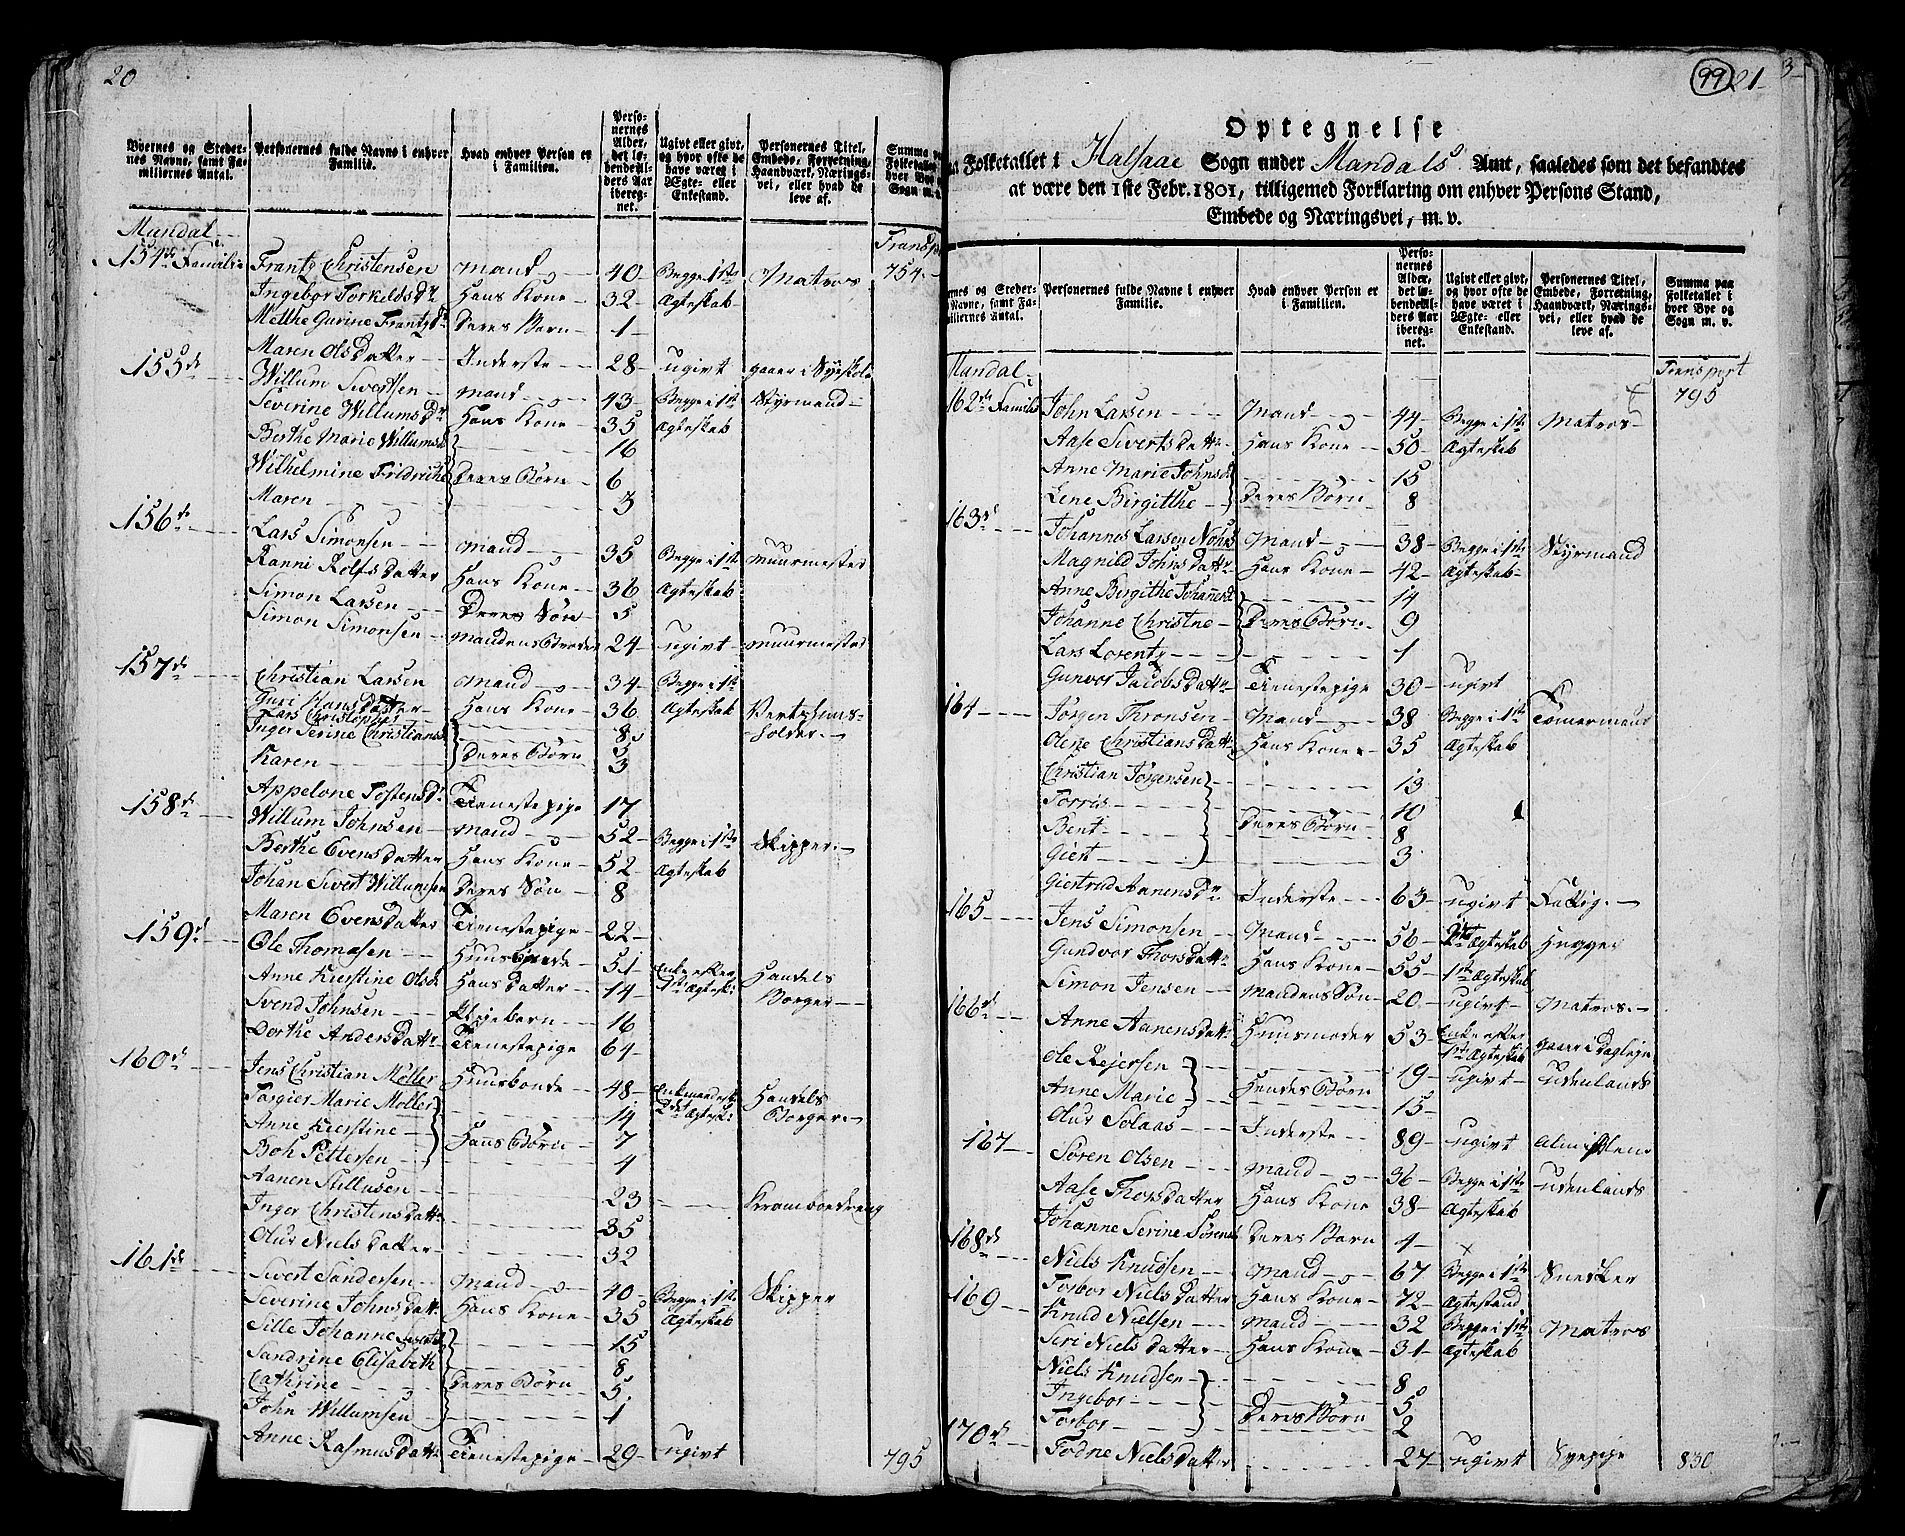 20
Byernes og Stedernes Navne, samt Familiernes Antal.
Personernes fulde Navne i enhver Familie.
Hvad enhver Person er i Familien.
Personernes Alder, det løbende Alders Aar iberegnet.
Ugivt eller givt, og hvor ofte de have været i Ægte- eller Enkestand.
Personernes Titel, Embede, Forretning, Haandværk, Næringsvei, eller hvad de leve af.
Mandal
Transp
154de Familie Frantz Christensen Mand 40 Begge i 1ste Matros 754
Ingebor Torkelds Dr Hans Kone 32 Ægteskab
Methe Gurine Frantzd Deres Barn 1
Maren Ols Datter Inderste 28 ugivt gaaer i Syeskole
155de Willum Sivertsen Mand 43 Begge i 1ste Styrmand
Severine Willums Dr Hans Kone 35 Ægteskab
Berthe Marie Willumsd 16
Wilhelmine Fridriche Deres Børn 6
Maren 3
156de Lars Simonsen Mand 35 Begge i 1ste Muurmester
Ranni Rolfs Datter Hans Kone 36 Ægteskab
Simon Larsen Deres Søn 5
Simon Simonsen Mandens Broder 24 ugivt Muurmester
157de Christian Larsen Mand 34 Begge i 1ste
Guri Hans Datter Hans Kone 36 Ægteskab Vertshuus-
Lars Christopher 8 holder
Inger Serine Christiansd 5
Karen Deres Børn 3
Appelone Tostens Dr Tienestepige 17
158de Willum Johnsen Mand 52 Begge i 1ste Skipper
Berthe Evens Datter Hans Kone 52 Ægteskab
Johan Sivert Willumsen Deres Søn 8
Maren Evens Datter Tienestepige 22
159d Ole Thomæsen Huusbonde 51 Enke efter Handels
Anne Kierstine Olsd Hans Datter 14 1ste Ægtesk: Borger
Svend Johnsen Pleiebarn 16
Dorthe Anders Dattr Tienestepige 64
160de Jens Christian Møller Huusbonde 48 Enkemand eft: Handels
Torgier Marie Møller 14 2det Ægtesk: Borger
Anne Kierstine Hans Børn 7
Boh Pettersen 4
Aanen Stillusen 23 Kramboedreng
Inger Christens Dattr 35
Olur Niels Datter 32
161de Sivert Sandersen Mand 40 Begge i 1ste Skipper
Severine Johns Datt: Hans Kone 35 Ægteskab
Sille Johanne Sivertsd 15
Sandrine Elisabeth 8
Cathrine Deres Børn 5
John Willumsen 1
Anne Rasmus Dattr Tienestepige 29 ugivt 795
99 21
Optegnelse
Folketallet i Halsaae Sogn under Mandals Amt, saaledes som det befandtes
at være den 1ste Febr. 1801, tilligemed Forklaring om enhver Persons Stand,
Embede og Næringsvei, m. v.
Personernes fulde Navne i enhver Familie.
Hvad enhver Person er i Familien.
Personernes Alder, det løbende Alders Aar iberegnet.
Ugivt eller givt, og hvor ofte de have været i Ægte- eller Enkestand.
Personernes Titel, Embede, Forretning, Haandværk, Næringsvei, eller hvad de leve af.
Summa paa Folketallet i hver Bye og Sogn m. v.
Mandal
Transport
795
162de Familie John Larsen Mand 44 Begge i 1ste Matros
Aase Siverts Dattr Hans Kone 50 Ægteskab
Anne Marie Johnsd 15
Lene Birgitthe Deres Børn 8
163d Johannes Larsen Nohrs Mand 38 Begge i 1ste Styrmand
Magnild Johns Dattr Hans Kone 42 Ægteskab
Anne Birgithe Johannesd 14
Johanne Christne Deres Børn 9
Lars Lorentz 1
Gunvor Jacobs Dattr Tienestepige 30 ugivt
164 Jørgen Thronsen Mand 38 Begge i 1ste Tømermand
Olene Christians Dattr Hans Kone 35 Ægteskab
Christian Jørgensen 13
Torris 10
Bent Deres Børn 8
Giert 3
Giertrud Aanens Dr Inderste 63 ugivt Fattig
165 Jens Simonsen Mand 56 Ægteskab Hugger
Gundvor Thors Dattr Hans Kone 55 1ste Ægteskab
Simon Jensen Mandens Søn 20 ugivt Matros
166de Anne Aanens Dattr Huusmoder 53 Enke efter gaaer i Dagleje
1ste Ægteskab
Ole Rejersen 19 ugivt Udenlands
Anne Marie Hendes Børn 15
Olur Solaas Inderste 89 ugivt Almissen
167 Søren Olsen Mand 36 Begge i 1ste Udenlands
Aase Thors Datter Hans Kone 38 Ægteskab
Johanne Serine Sørens Deres Barn 4
168de Niels Knudsen Mand 67 Begge i 1ste Snecker
Torbor Niels Datter Hans Kone 72 Ægtestand
169 Knud Nielsen Mand 32 Begge i 1ste Matros
Seri Niels Datter Hans Kone 31 Ægteskab
Niels Knudsen 8
Ingebor 5
Torbor Deres Børn 2
170de Todne Niels Datter 27 ugivt Syepige 830